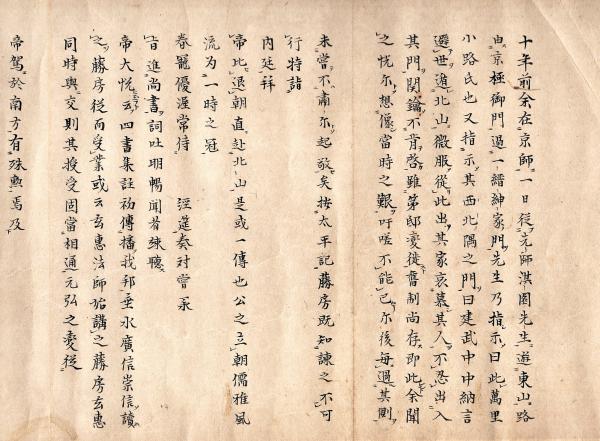 十年前余在京師一日従先師淇園先生遊東山路
由京極御門過一縉紳家門先生乃指示曰此萬里
小路氏也又指示其西北隅之門曰建武中中納言
遯世遁北山微服從此出其家哀慕其人不忍出入
其門関鑰不肯啓雖第邸変徙舊制尚存即此余聞
之悦尓想像當時之艱吁嗟不能已尓後毎過其側
未嘗不肅尓起敬矣按太平記藤房既知諫之不可
行特詣
内廷拜
帝比退朝直赴北山是或一傳也公之立朝儒雅風
流为一時之冠
眷寵優渥常侍　經筵奏对嘗承
旨進尚書詞吐明暢聞者竦聴
帝大悦云四書集註初傳播我邦垂水廣信崇信讀
之藤房從而受業或云玄惠法師始講之藤房玄惠
同時與交則其授受固當相通元弘之変從
帝駕於南方有殊勲焉及